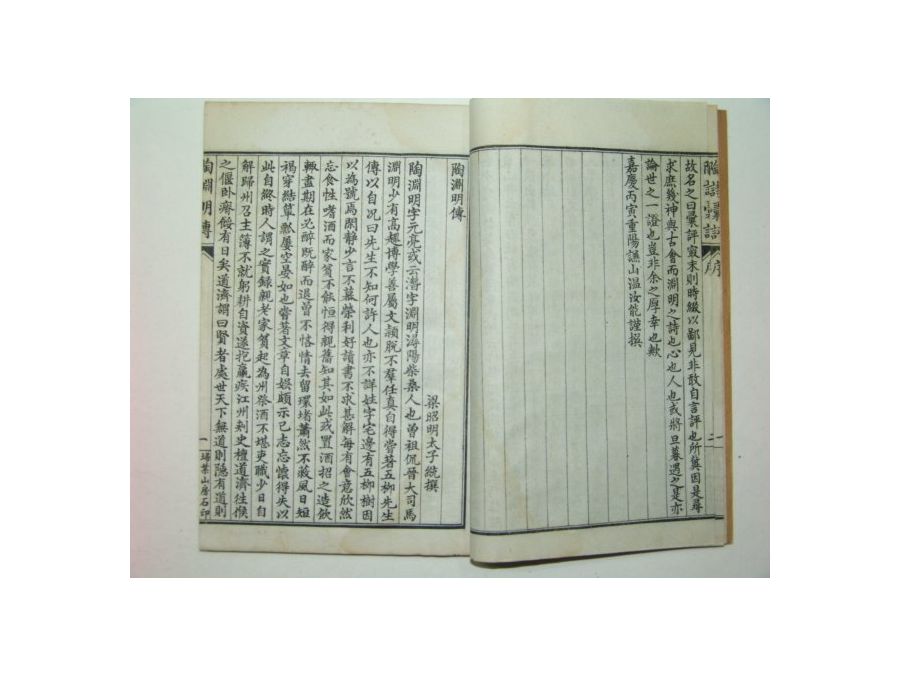 陶詩彙評 序
故名之曰彙評窽末則時綴以鄙見非敢自言評也所冀因是尋
求庶幾神與古會而淵明之詩也心也人也或將旦暮遇之是亦
論世之一證也豈非余之厚幸也歟
嘉慶丙寅重陽謙山温汝能謹撰
二
陶淵明傳
梁昭明太子統撰
陶淵明字元亮或云潛字淵明潯陽柴桑人也曾祖侃晉大司馬
淵明少有高趣博學善屬文穎脫不羣任真自得嘗著五柳先生
傳以自况曰先生不知何許人也亦不詳姓字宅邊有五柳樹因
以為號焉閑静少言不慕榮利好讀書不求甚解每有會意欣然
忘食性嗜酒而家貧不能恒得親舊知其如此或置酒招之造飲
輒盡期在必醉既醉而退曾不恡情去留環堵蕭然不蔽風日短
褐穿結簞瓢屢空晏如也嘗著文章自娛頗示己志忘懷得失以
此自終時人謂之實錄親老家貧起為州祭酒不堪吏職少日自
解歸州召主簿不就躬耕自資遂抱羸疾江州刺史檀道濟往候
之偃卧瘠餒有日矣道濟謂曰賢者處世天下無道則隱有道則
陶淵明傳
一
埽葉山房石印